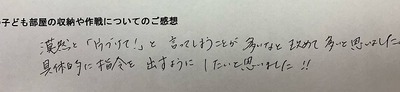 子ども部屋の収納や作戦についてのご感想
漠然と「片づけて!」と言ってしまうことが多いなと改めて多いと思いました。
具体的に指令を出すようにしたいと思いました!!